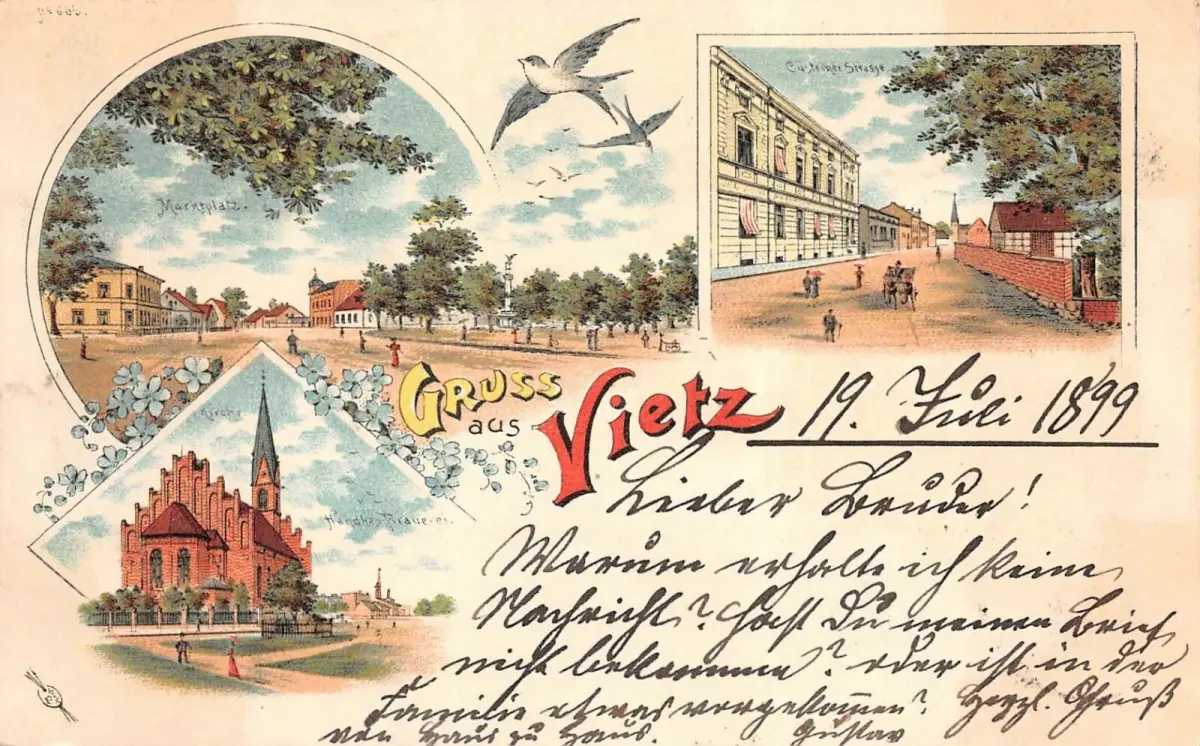 No 605.
Marktplatz.
Cüstriner Strasse
Kirche
Handkes Brauerei.
GRUSS
aus Vietz
19. Juli 1899
Lieber Bruder!
Warum erhalte ich keine
Nachricht? Hast Du meinen Brief
nicht bekommen? oder ist in der
Familie etwas vorgekommen? Herzl. Gruß
von Haus zu Haus. Gustav